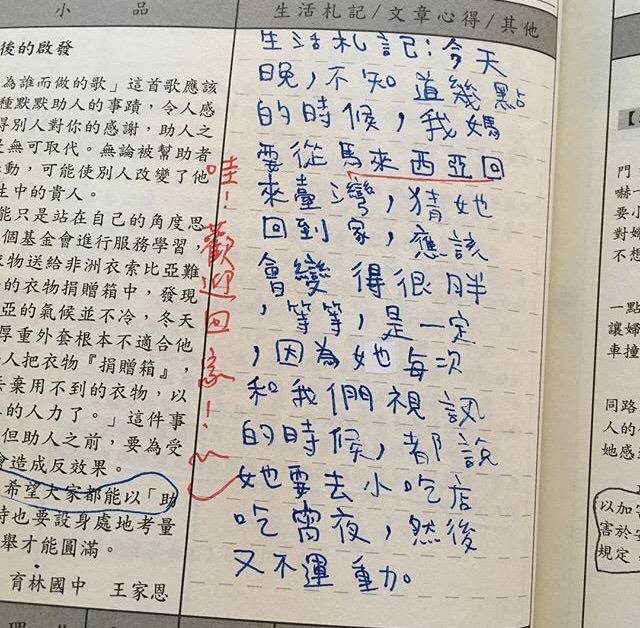 小品
後的啟發
為誰而做的歌」這首歌應該
種默默助人的事蹟，令人感
得別人對你的感謝，助人之
是無可取代。無論被幫助者
動，可能使別人改變了他
生中的貴人。
能只是站在自己的角度思
個基金會進行服務學習，
衣物送給非洲衣索比亞難
的衣物捐贈箱中，發現
亞的氣候並不冷，冬天
厚重外套根本不適合他
人把衣物『捐贈箱』，
丟棄用不到的衣物，以
的人力了。」這件事
但助人之前，要為受
會造成反效果。
希望大家都能以「助
時也要設身處地考量
舉才能圓滿。
育林國中 王家恩
生活札記/文章心得/其他
生活札記：今天
晚，不知道幾點
的時候，我媽
要從馬來西亞回
來臺灣，猜她
回到家，應該
會變得很胖
，等等，是一定
，因為她每次
和我們視訊
的時候，都說
她要去小吃店
吃宵夜，然後
又不運動。
哇！歡迎回家！
門
嚇
要
對婦
不想
一點
讓婦
車撞
同路
人的
她感
以加害
害於安
規定